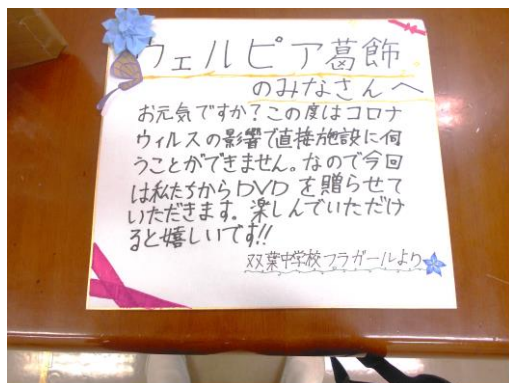 ウェルピア葛飾
のみなさんへ
お元気ですか?この度はコロナ
ウィルスの影響で直接施設に伺
うことができません。なので今回
は私たちからDVDを贈らせて
いただきます。楽しんでいただけ
ると嬉しいです!!
双葉中学校フラガールより